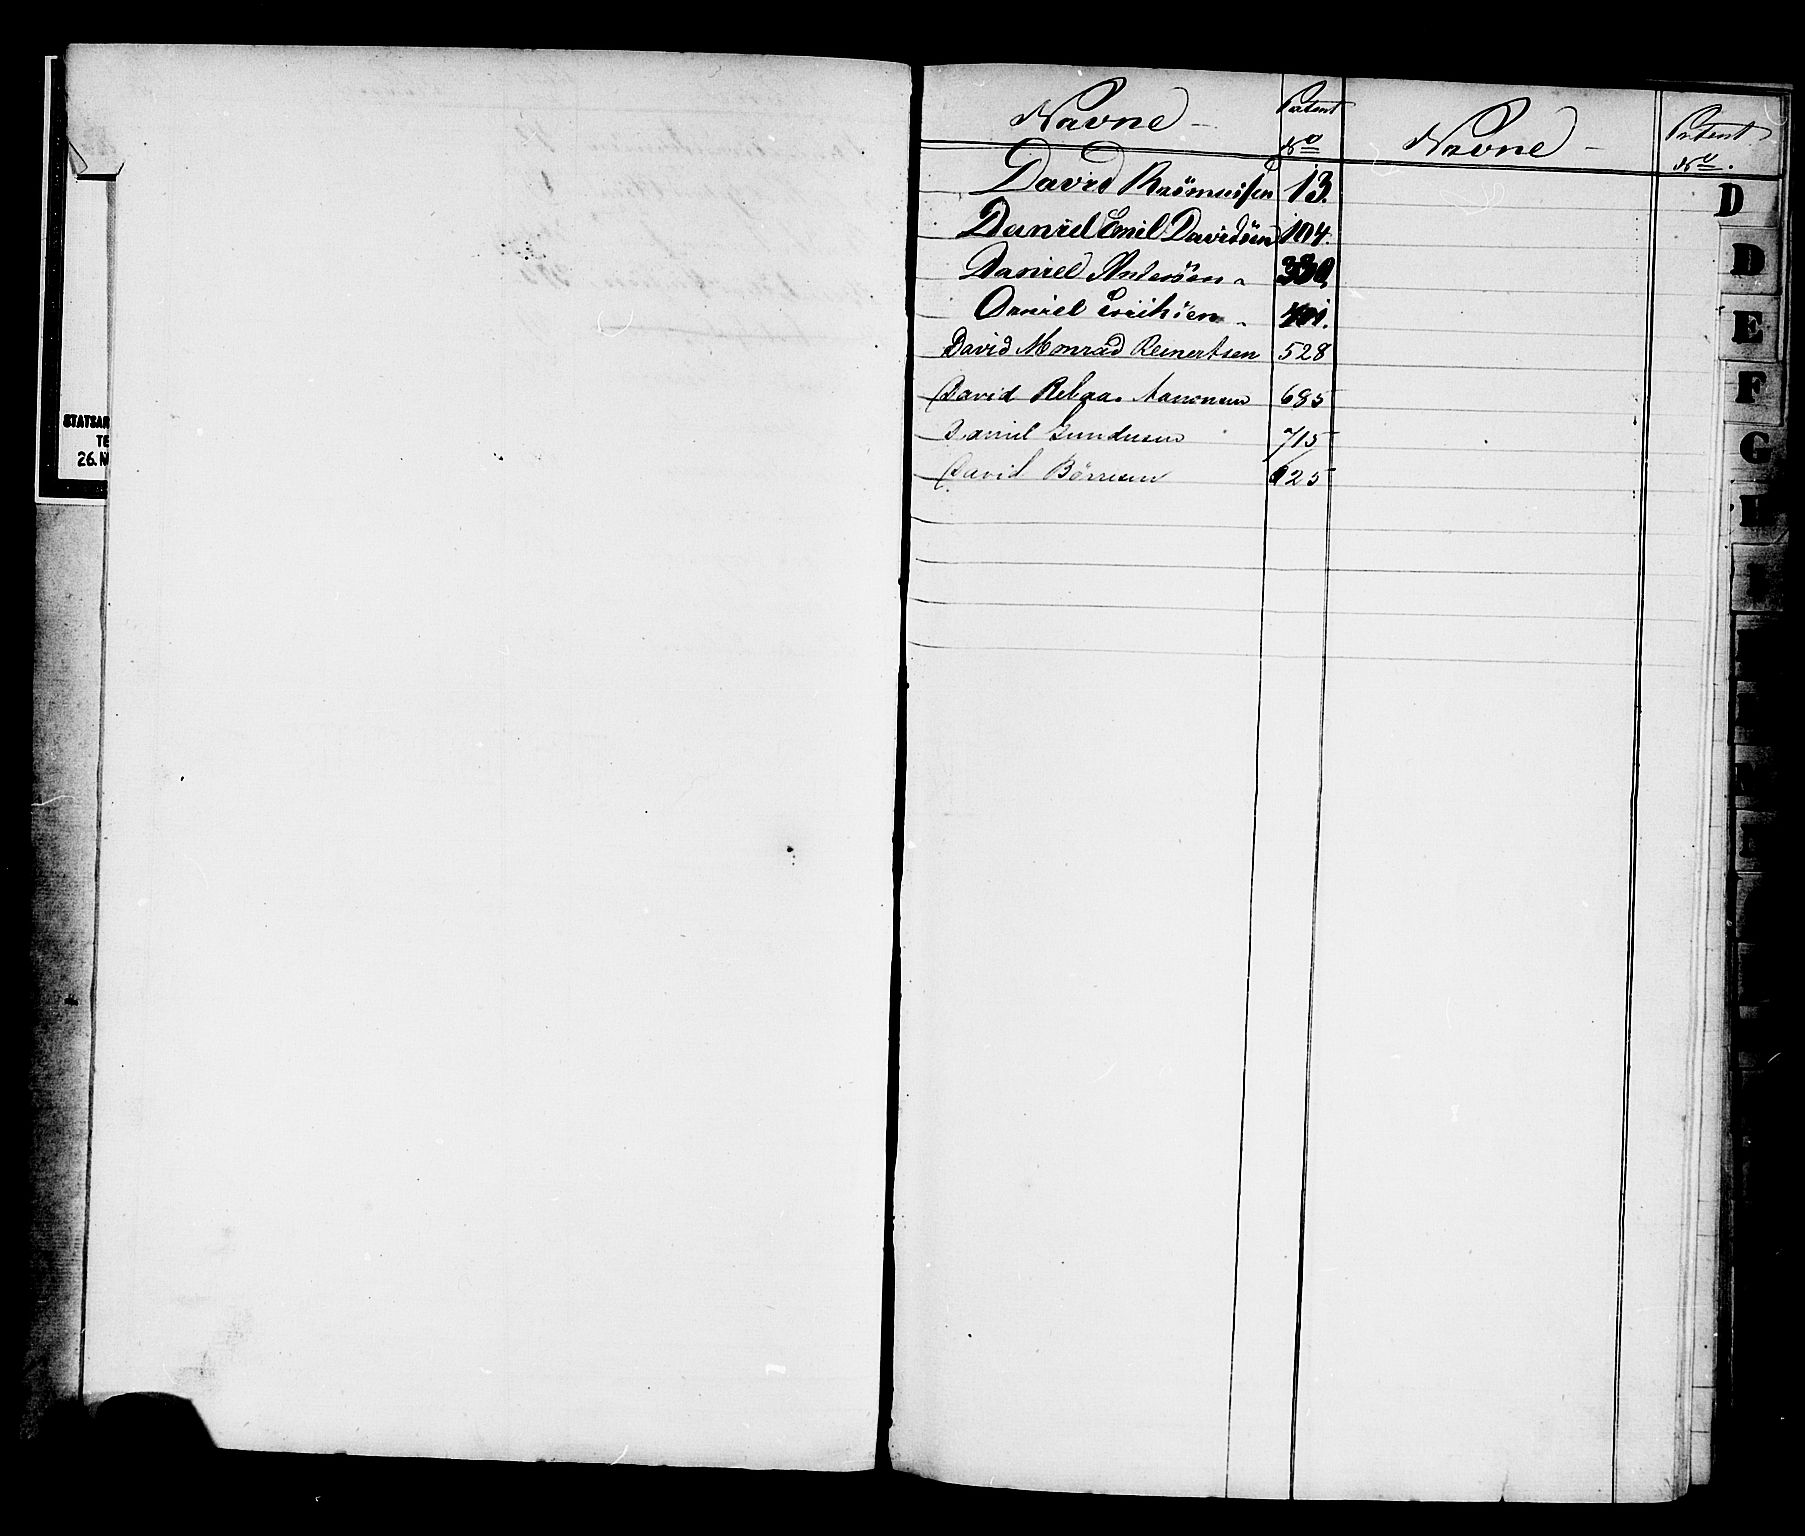 Navne - Patent Nº Navne - Patent Nº.
David Rasmussen 13.
Daniel Emil Davidsen 104.
Daniel Andersen
Daniel Erichsen
David Monrad Reinertsen 528
David 685
Daniel 715
David Børresen 625
STATSAR
TE
26. N
D
D
E
F
G
H